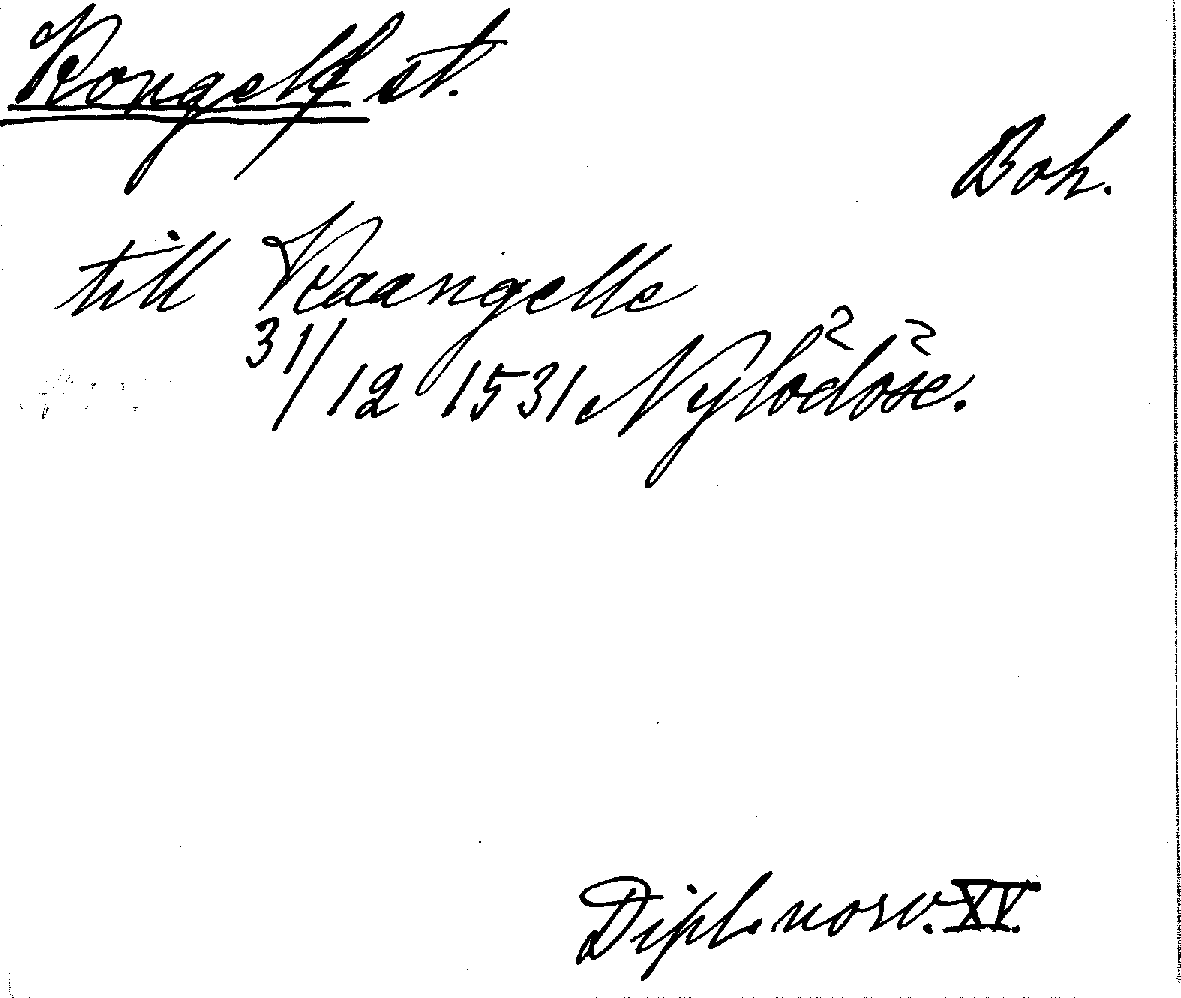 Kongelf st.
Boh.
till Kaangelle
31/12 1531 Nylödöse.
Dipl. norv. XV.